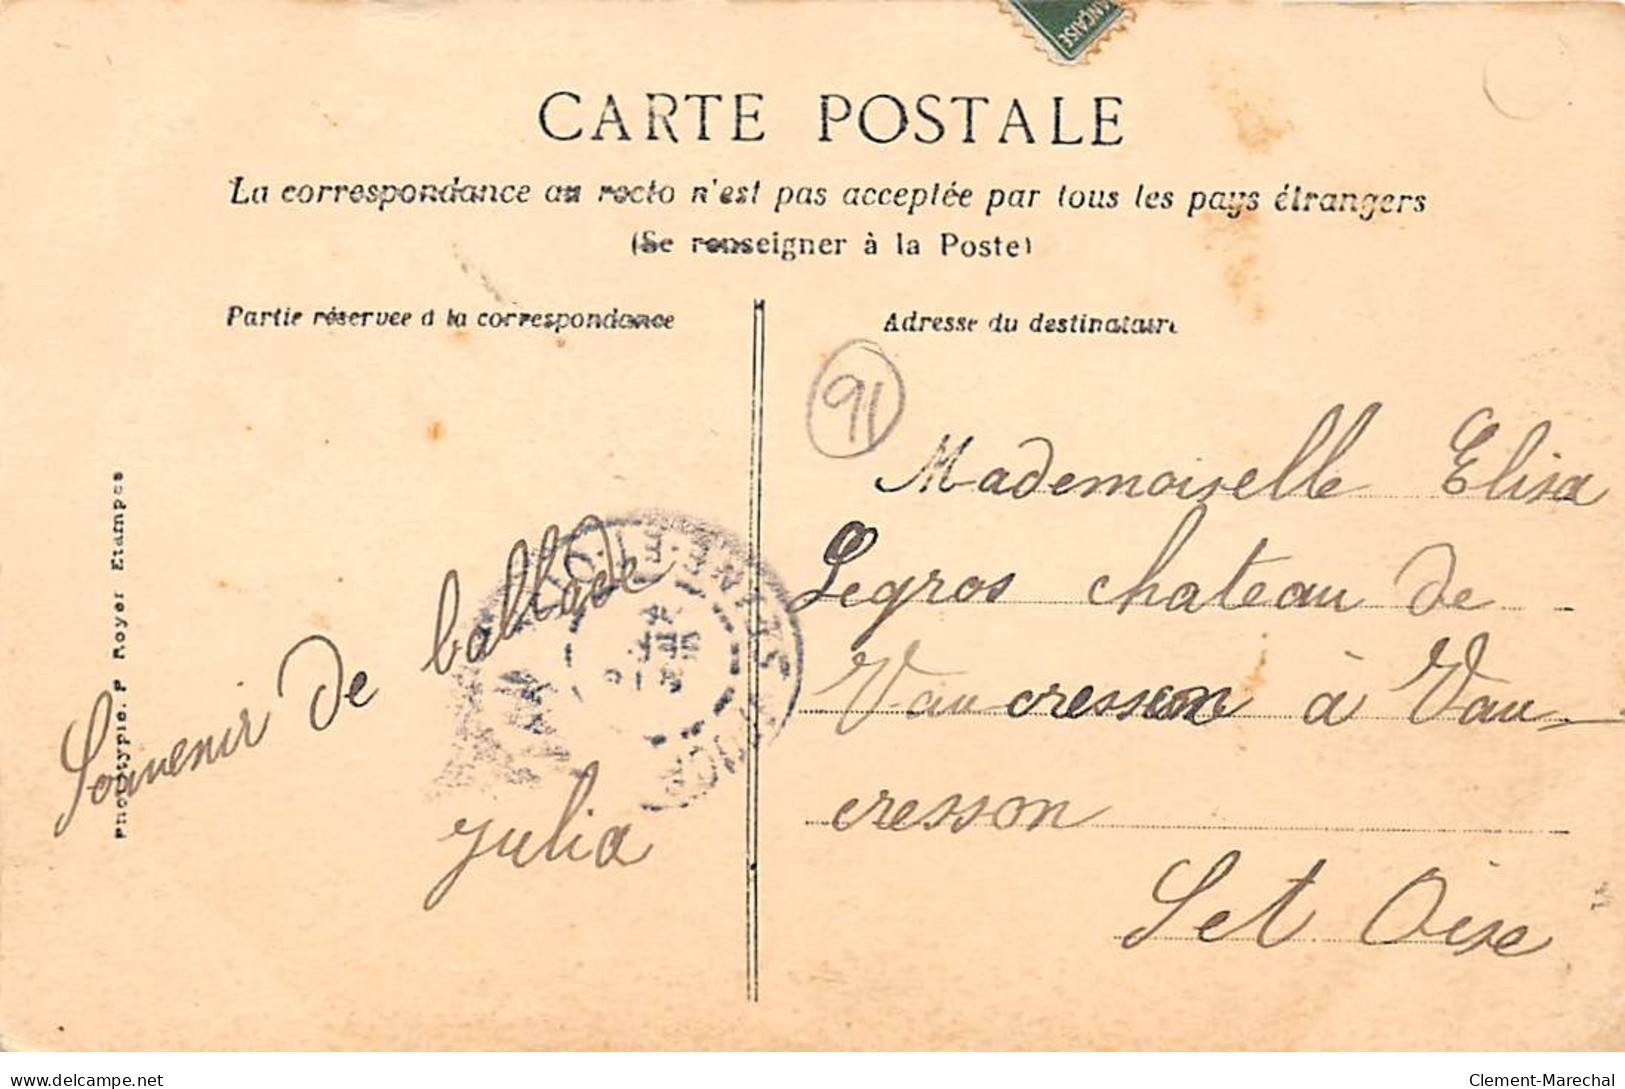 ANÇAISE
CARTE POSTALE
La correspondance au recto n'est pas acceptée par tous les pays étrangers
(Se renseigner à la Poste)
Partie réservée à la correspondance
Adresse du destinataire
91
Phototypie. P Royer Etampes
Souvenir de ballade
Julia
Mademoiselle Elisa
Legros chateau de
Vaucresson à Vau
cresson
S et Oise
delcampe.net
Clement-Marechal